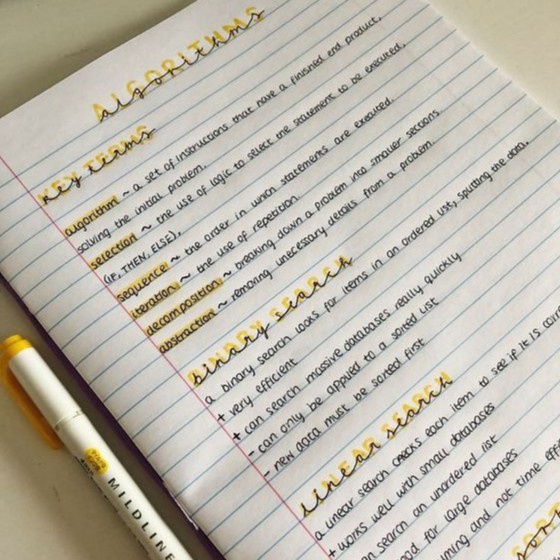 ALGORITHMS
algorithms
KEY TERMS
key terms
algorithm ~ a set of instructions that have a finished end product,
solving the initial problem.
selection ~ the use of logic to select the statement to be executed.
(IF, THEN, ELSE),
sequence ~ the order in which statements are executed.
iteration ~ the use of repetition.
decomposition ~ breaking down a problem into smaller sections.
abstraction ~ removing unnecessary details from a problem.
BINARY SEARCH
binary search
a binary search looks for items in an ordered list, splitting the data.
+ very efficient
+ can search massive databases really quickly
- can only be applied to a sorted list
- new data must be sorted first
LINEAR SEARCH
linear search
a linear search checks each item to see if it is
+ works well with small databases
search an unordered list
for large databases
and not time
MILDLINE